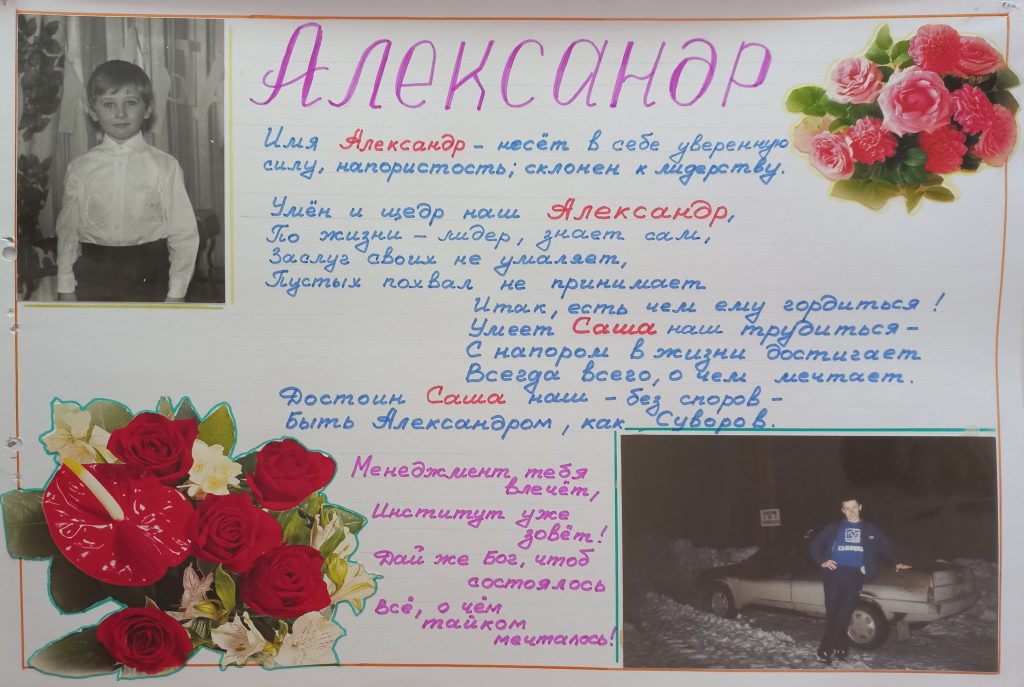 Александр
Имя Александр - несёт в себе уверенную
силу, напористость; склонен к лидерству.
Умён и щедр наш Александр,
По жизни - лидер, знает сам,
Заслуг своих не умаляет,
Пустых похвал не принимает
Итак, есть чем ему гордиться!
Умеет Саша наш трудиться -
С напором в жизни достигает
Всегда всего, о чем мечтает.
Достоин Саша наш - без споров -
Быть Александром, как Суворов.
Менеджмент тебя
влечёт,
Институт уже
зовёт!
Дай же Бог, чтоб
состоялось
Всё, о чём
тайком
мечталось!